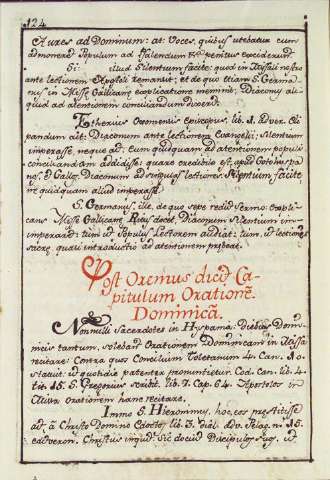 124
Aures ad Dominum: at Voces, quibus utebatur cum
admoneret Populum ad Psalendum Responsus exciderunt.
Si: illud Silentium facite: quod in Missali nostro
ante lectionem Apostoli remansit; et de quo etiam S. Germa-
nus in Missæ Gallicanæ explicatione meminit; Diaconus ali-
quid ad attentionem conciliandum dicendi.
Etherius Oxomensis Episcopus, lib. 1. Adver. Eli-
pandum ait: Diaconum ante lectionem Evangelii; Silentium
imperasse, neque ad; cum quidquam ad attentionem populi
conciliandam addidisse: quare credibile est, apud Gothispa-
nos, & Gallos, Diaconum ad singulas lectiones Silentium facite
ne quidquam aliud imperasse.
S. Germanus, ille, de quo sepe redit sermo: Explic-
ans Missæ Gallicanæ Ritus docet, Diaconum Silentium im-
imperare: tum ut Populus Lectorem audiat: tum, ut lectionis
sacræ, quasi introductio ad attentionem præbeat.
Post Oremus dicit Ca-
pitulum Orationē
Dominicā.
Nonnulli Sacerdotes in Hyspania: Diebus Domi-
nicis tantum, solebant Orationem Dominicam in Missa
recitare: Contra quos Concilium Toletanum 4. Can. 10.
Statuit: ut quotidie patenter pronuntietur. Cod. can. lib. 4.
tit. 15. S. Gregorius scribit. lib. 7. Cap. 64. Apostolos in
Missa orationem hanc recitare.
Immo S. Hieronymus, hoc, eos præstitisse
ait, à Christo Domino edoctos, lib. 3. dial. adv. Pelag. n. 15.
Christus inquid: Sic docuit Discipulos suos, ut